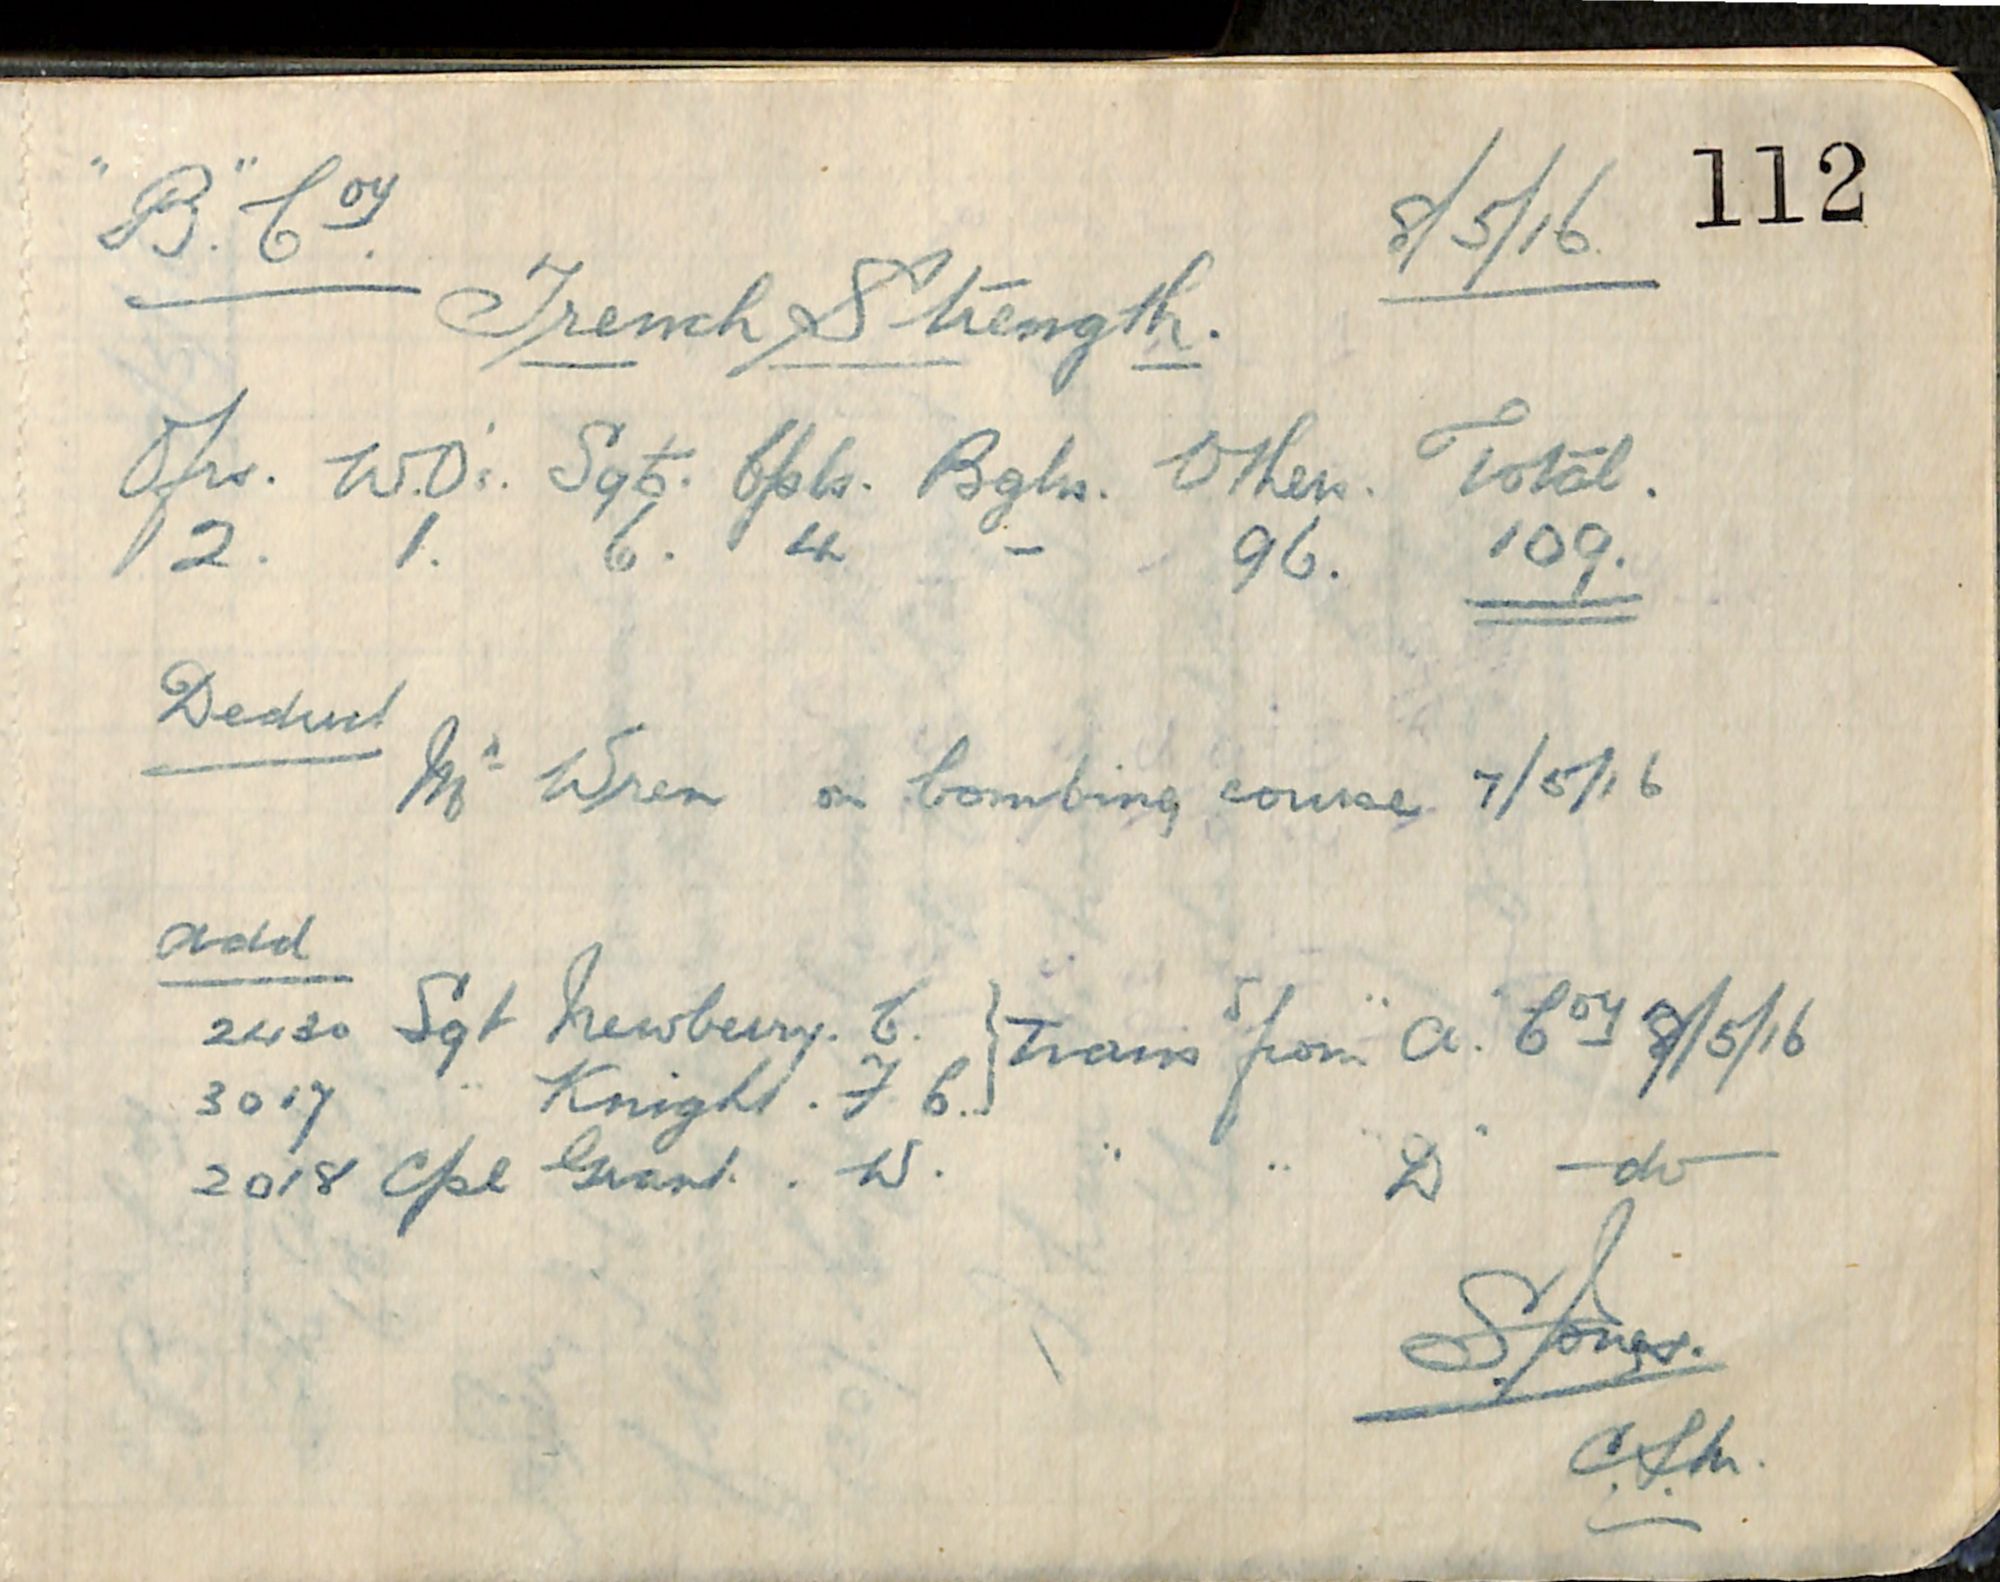 "B." Coy. 8/5/16 112
Trench Strength.
Ofrs. W.O's. Sgts. Cpls. Bglrs. Others. Total.
2. 1. 6. 4 - 96. 109.
Deduct
Mr Wren on bombing course 7/5/16
Add
2430 Sgt Newbury. C. } Trans from "A" Coy 8/5/16
3017 " Knight. F C.
2018 Cpl Grant. W. " " "D" -do-
S Jones.
C.S.M.